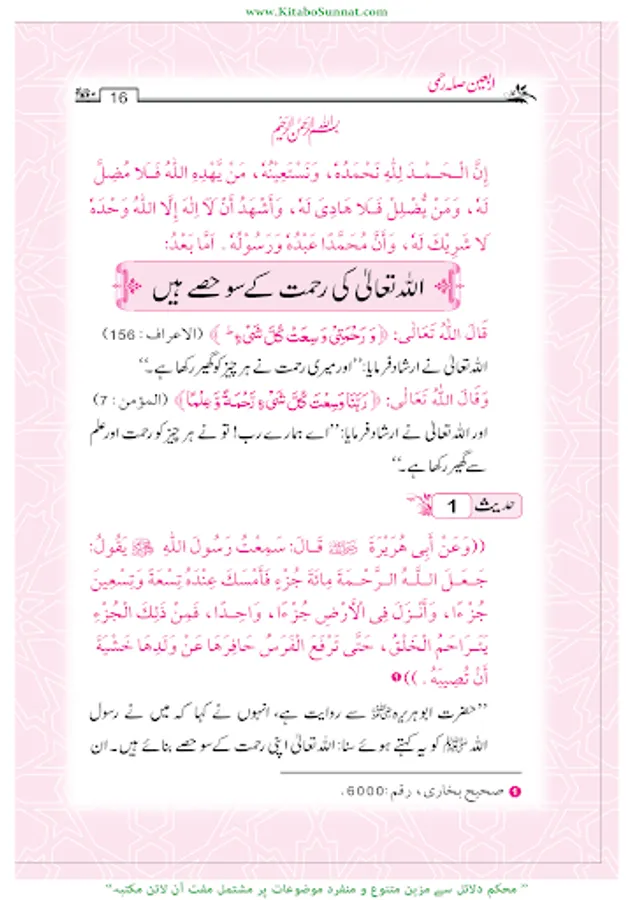 www.KitaboSunnat.com
اربعین صلہ رحمی
16
بسم اللہ الرحمن الرحیم
إِنَّ الْحَمْدَ لِلّٰهِ نَحْمَدُهٗ، وَنَسْتَعِيْنُهٗ، مَنْ يَّهْدِهِ اللّٰهُ فَلَا مُضِلَّ
لَهٗ، وَمَنْ يُّضْلِلْ فَلَا هَادِىَ لَهٗ، وَأَشْهَدُ أَنْ لَآ إِلٰهَ إِلَّا اللّٰهُ وَحْدَهٗ
لَا شَرِيْكَ لَهٗ، وَأَنَّ مُحَمَّدًا عَبْدُهٗ وَرَسُوْلُهٗ . اَمَّا بَعْدُ:
اللہ تعالیٰ کی رحمت کے سو حصے ہیں
قَالَ اللّٰهُ تَعَالٰى: ﴿ وَ رَحْمَتِيْ وَسِعَتْ كُلَّ شَيْءٍ ؕ ﴾ (الاعراف : 156)
اللہ تعالیٰ نے ارشاد فرمایا: ’’اور میری رحمت نے ہر چیز کو گھیر رکھا ہے۔‘‘
وَقَالَ اللّٰهُ تَعَالٰى: ﴿ رَبَّنَا وَسِعْتَ كُلَّ شَيْءٍ رَّحْمَةً وَّ عِلْمًا ﴾ (المؤمن : 7)
اور اللہ تعالیٰ نے ارشاد فرمایا: ’’اے ہمارے رب! تو نے ہر چیز کو رحمت اور علم
سے گھیر رکھا ہے۔‘‘
حدیث 1
((وَعَنْ أَبِى هُرَيْرَةَ ؓ قَالَ: سَمِعْتُ رَسُولَ اللّٰهِ ﷺ يَقُولُ:
جَعَلَ اللّٰهُ الرَّحْمَةَ مِائَةَ جُزْءٍ فَأَمْسَكَ عِنْدَهُ تِسْعَةً وَتِسْعِينَ
جُزْءًا، وَأَنْزَلَ فِى الْأَرْضِ جُزْءًا، وَاحِدًا، فَمِنْ ذَلِكَ الْجُزْءِ
يَتَرَاحَمُ الْخَلْقُ، حَتَّى تَرْفَعَ الْفَرَسُ حَافِرَهَا عَنْ وَلَدِهَا خَشْيَةَ
أَنْ تُصِيبَهُ . )) ❶
’’حضرت ابوہریرہ ؓ سے روایت ہے، انہوں نے کہا کہ میں نے رسول
اللہ ﷺ کو یہ کہتے ہوئے سنا: اللہ تعالیٰ اپنی رحمت کے سو حصے بنائے ہیں۔ ان
❶ صحیح بخاری ، رقم :6000 .
’’ محکم دلائل سے مزین متنوع و منفرد موضوعات پر مشتمل مفت آن لائن مکتبہ‘‘